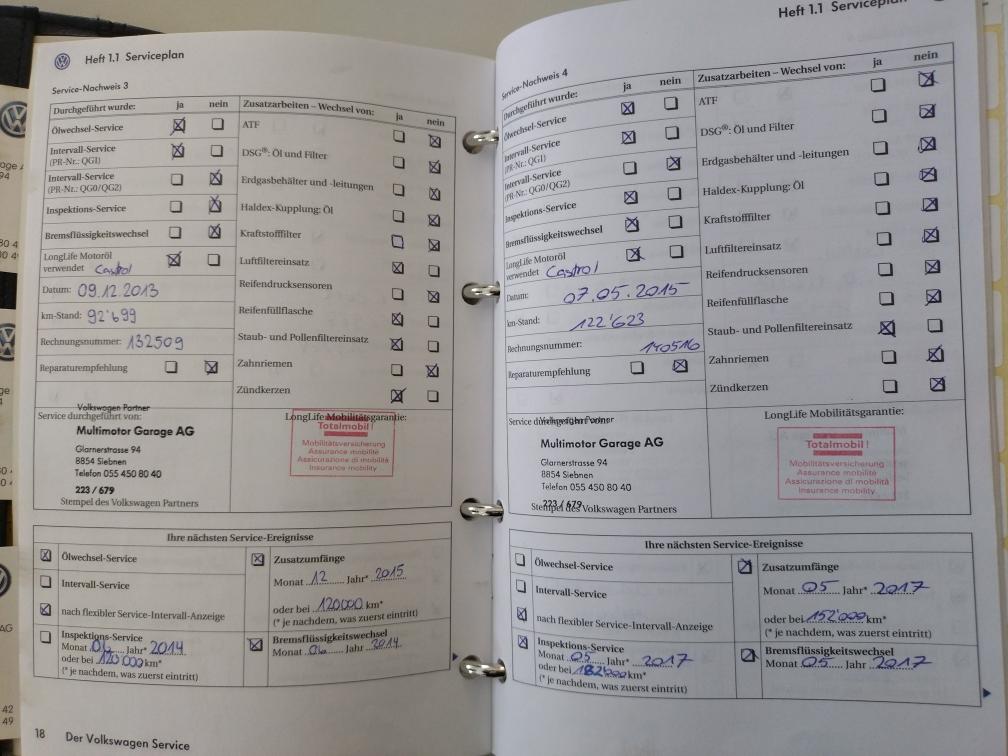 Heft 1.1 Serviceplan
Service-Nachweis 3
Durchgeführt wurde: ja nein
Ölwechsel-Service
Intervall-Service
(PR-Nr.: QG1)
Intervall-Service
(PR-Nr.: QG0/QG2)
Inspektions-Service
Bremsflüssigkeitswechsel
LongLife Motoröl
verwendet Castrol
Datum: 09.12.2013
km-Stand: 92'699
Rechnungsnummer: 132509
Reparaturempfehlung
Zusatzarbeiten – Wechsel von: ja nein
ATF
DSG®: Öl und Filter
Erdgasbehälter und -leitungen
Haldex-Kupplung: Öl
Kraftstofffilter
Luftfiltereinsatz
Reifendrucksensoren
Reifenfüllflasche
Staub- und Pollenfiltereinsatz
Zahnriemen
Zündkerzen
Volkswagen Partner
Service durchgeführt von:
Multimotor Garage AG
Glarnerstrasse 94
8854 Siebnen
Telefon 055 450 80 40
223 / 679
Stempel des Volkswagen Partners
LongLife Mobilitätsgarantie:
Totalmobil!
Mobilitätsversicherung
Assurance mobilité
Assicurazione di mobilità
Insurance mobility
Ihre nächsten Service-Ereignisse
Ölwechsel-Service
Intervall-Service
nach flexibler Service-Intervall-Anzeige
Inspektions-Service
Monat 06 Jahr* 2014
oder bei 120'000 km*
(* je nachdem, was zuerst eintritt)
Zusatzumfänge
Monat 12 Jahr* 2015
oder bei 120000 km*
(* je nachdem, was zuerst eintritt)
Bremsflüssigkeitswechsel
Monat 06 Jahr 2014
18 Der Volkswagen Service
Heft 1.1 Serviceplan
Service-Nachweis 4
Durchgeführt wurde: ja nein
Ölwechsel-Service
Intervall-Service
(PR-Nr.: QG1)
Intervall-Service
(PR-Nr.: QG0/QG2)
Inspektions-Service
Bremsflüssigkeitswechsel
LongLife Motoröl
verwendet Castrol
Datum: 07.05.2015
km-Stand: 122'623
Rechnungsnummer: 140516
Reparaturempfehlung
Zusatzarbeiten – Wechsel von: ja nein
ATF
DSG®: Öl und Filter
Erdgasbehälter und -leitungen
Haldex-Kupplung: Öl
Kraftstofffilter
Luftfiltereinsatz
Reifendrucksensoren
Reifenfüllflasche
Staub- und Pollenfiltereinsatz
Zahnriemen
Zündkerzen
Volkswagen Partner
Service durchgeführt von:
Multimotor Garage AG
Glarnerstrasse 94
8854 Siebnen
Telefon 055 450 80 40
223 / 679
Stempel des Volkswagen Partners
LongLife Mobilitätsgarantie:
Totalmobil!
Mobilitätsversicherung
Assurance mobilité
Assicurazione di mobilità
Insurance mobility
Ihre nächsten Service-Ereignisse
Ölwechsel-Service
Intervall-Service
nach flexibler Service-Intervall-Anzeige
Inspektions-Service
Monat 05 Jahr* 2017
oder bei km*
(* je nachdem, was zuerst eintritt)
Zusatzumfänge
Monat 05 Jahr* 2017
oder bei 152'000 km*
(* je nachdem, was zuerst eintritt)
Bremsflüssigkeitswechsel
Monat 05 Jahr 2017